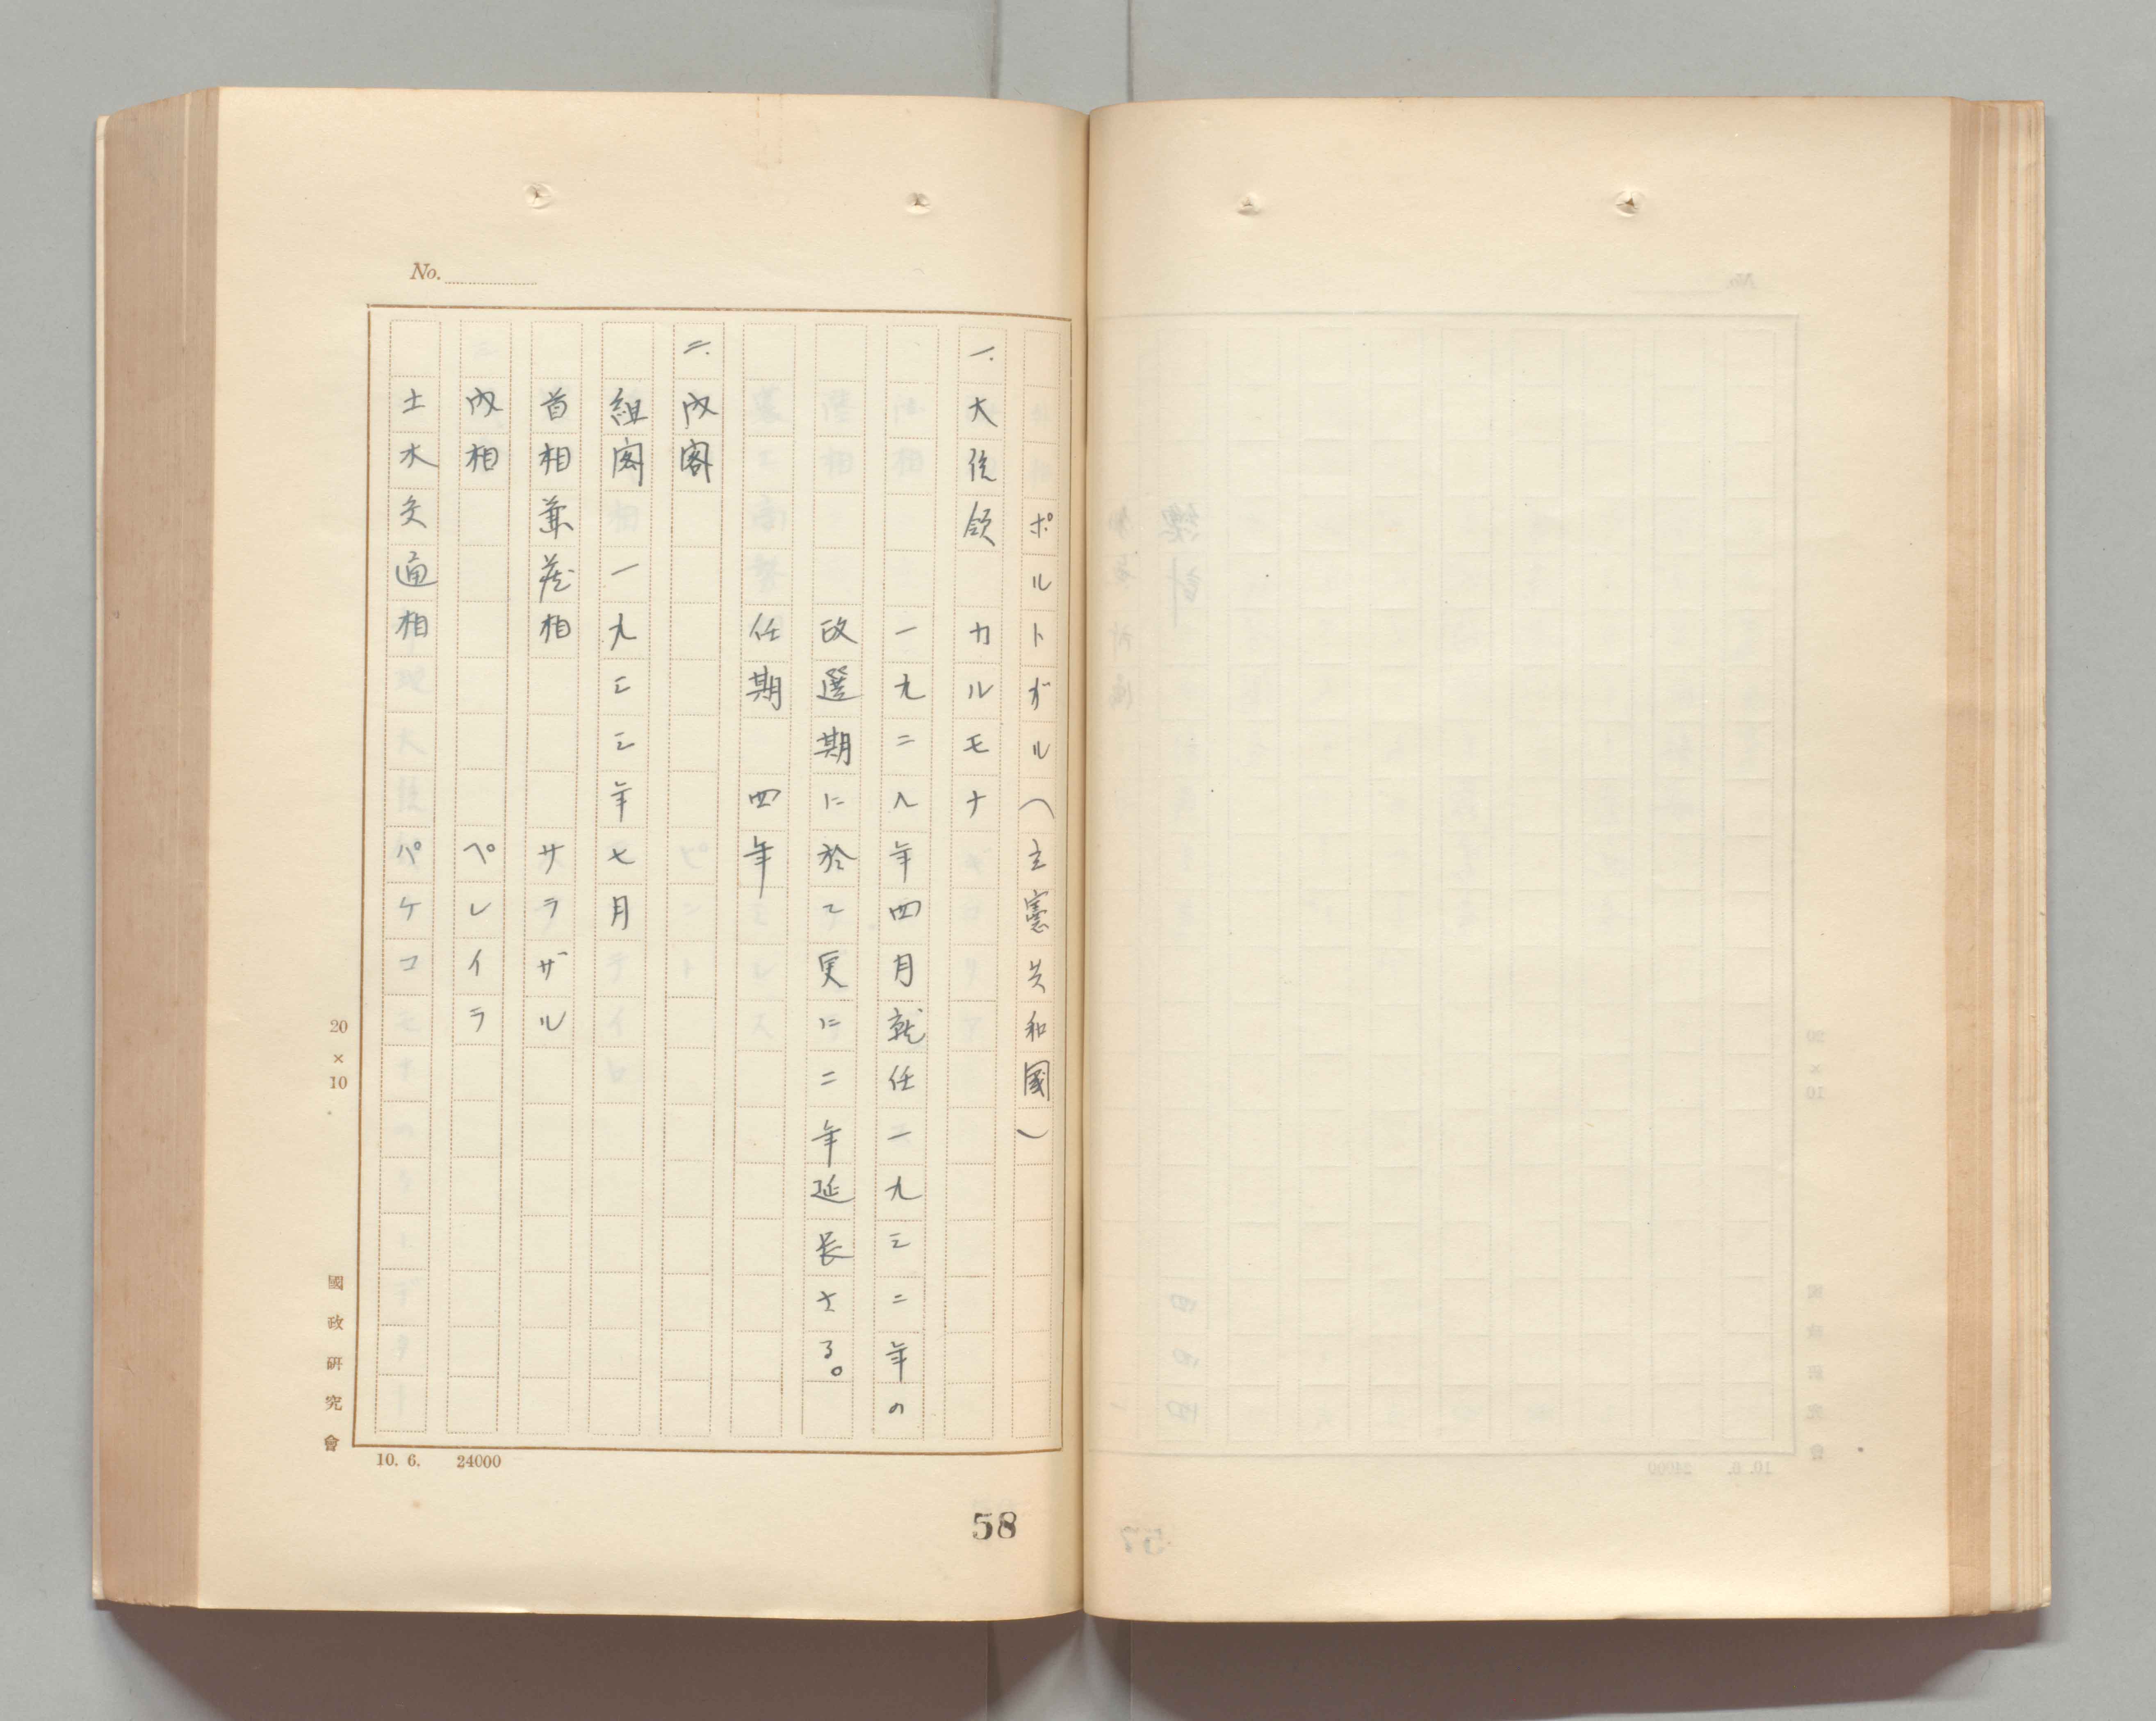 ポルトガル（立憲共和國）
一.大統領　カルモナ
一九二八年四月就任一九三二年の
改選期に於て更に二年延長さる。
任期　四年
二.内閣
組閣　一九三三年七月
首相兼蔵相　サラザル
内相　ペレイラ
土木交通相　パケコ
No.
20×10
國政研究會
10. 6.　24000
58